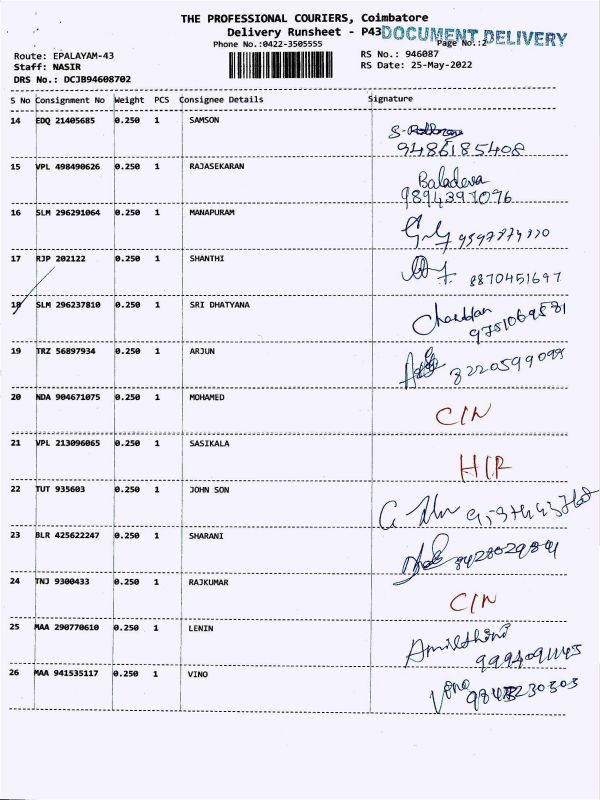 THE PROFESSIONAL COURIERS, Coimbatore
Delivery Runsheet - P43
DOCUMENT DELIVERY
Phone No.:0422-3505555
Page No.:2
Route: EPALAYAM-43
RS No.: 946087
Staff: NASIR
RS Date: 25-May-2022
DRS No.: DCJB94608702
S No Consignment No Weight PCS Consignee Details Signature
14 EDQ 21405685 0.250 1 SAMSON
9486185408
15 VPL 498490626 0.250 1 RAJASEKARAN Baladeva
9894397096
16 SLM 296291064 0.250 1 MANAPURAM
17 RJP 202122 0.250 1 SHANTHI 8870451697
18 SLM 296237810 0.250 1 SRI DHATYANA
9751069581
19 TRZ 56897934 0.250 1 ARJUN
20 NDA 904671075 0.250 1 MOHAMED C/N
21 VPL 213096065 0.250 1 SASIKALA
22 TUT 935603 0.250 1 JOHN SON
23 BLR 425622247 0.250 1 SHARANI
24 TNJ 9300433 0.250 1 RAJKUMAR C/N
25 MAA 290770610 0.250 1 LENIN
26 MAA 941535117 0.250 1 VINO Vino